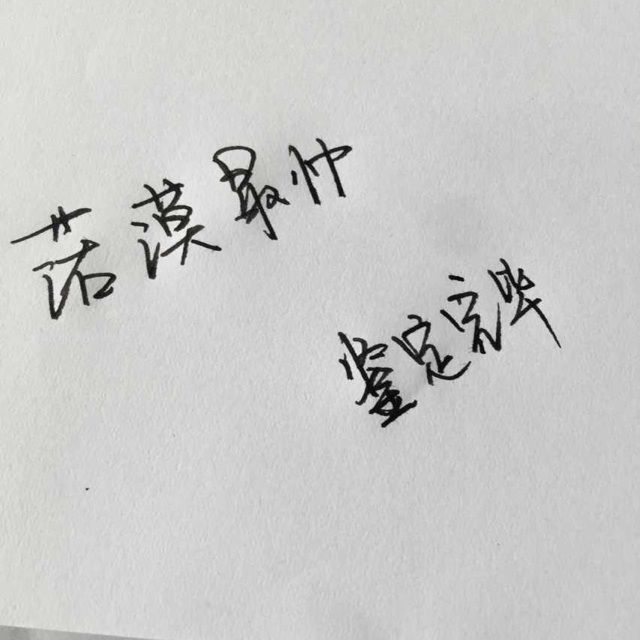 落漠最帅
鉴定完毕